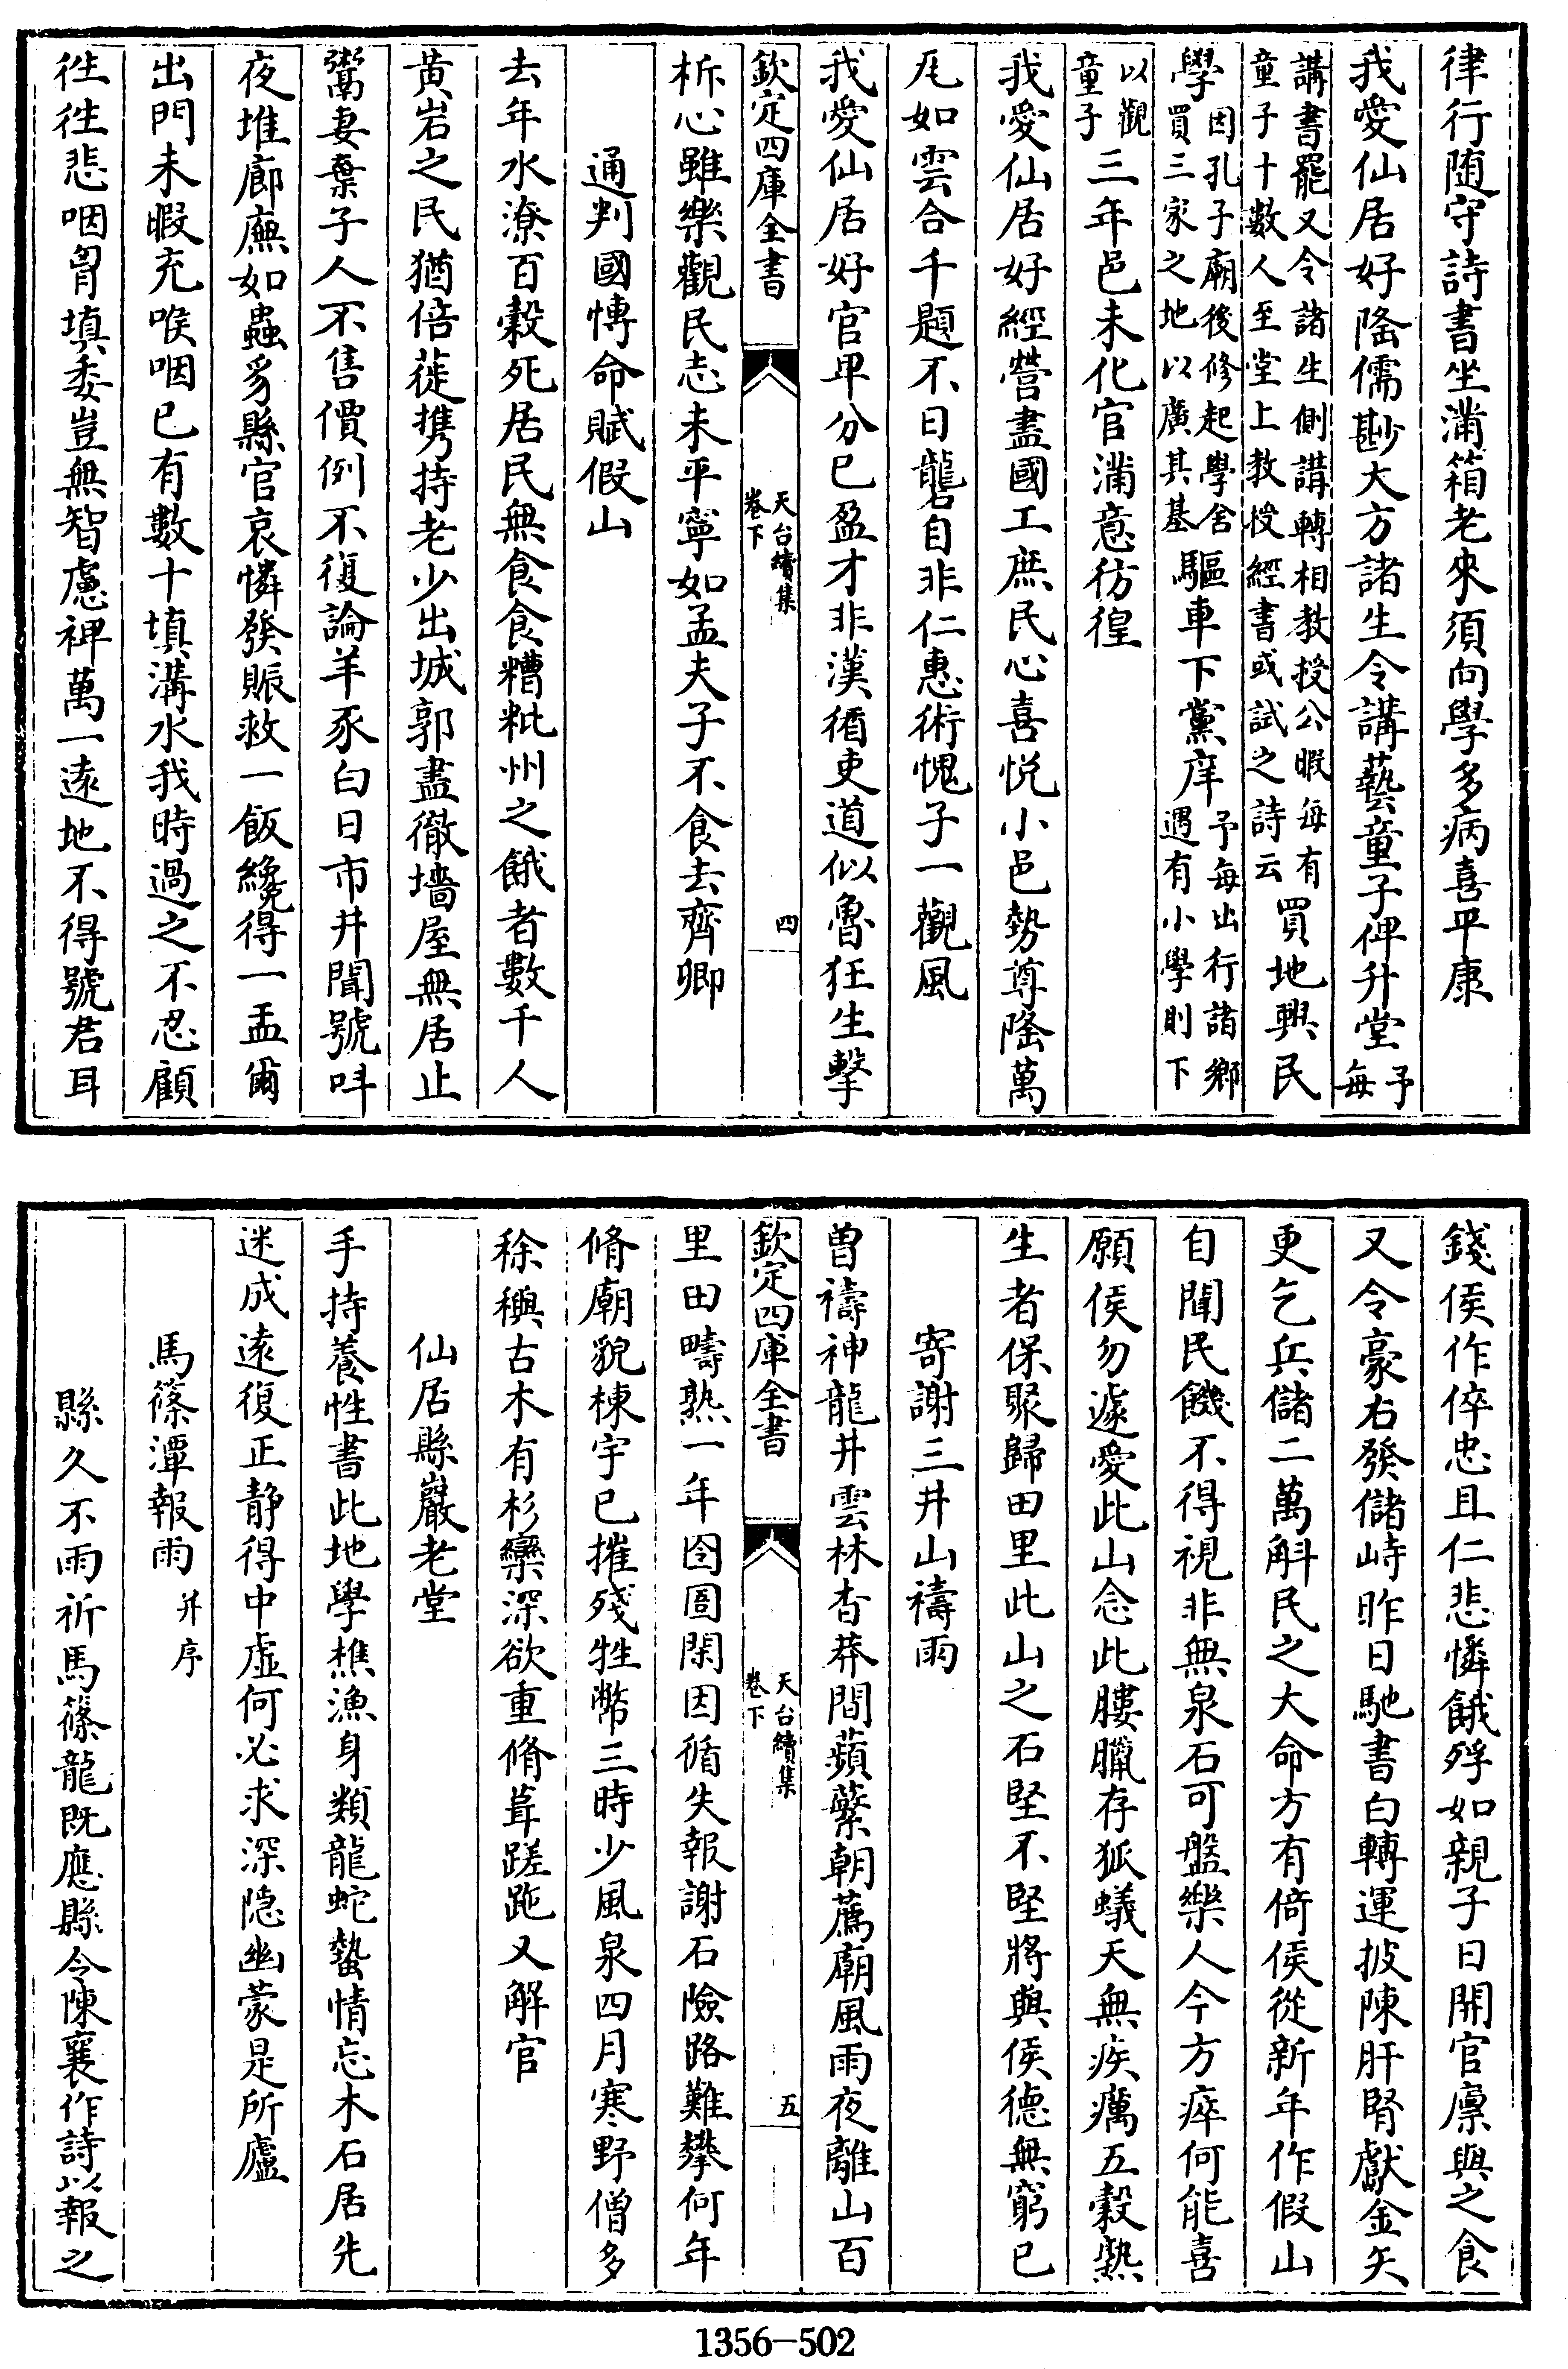 律行随守詩書坐滿箱老來須向學多病喜平康
我愛仙居好隆儒尠大方諸生令講藝童子俾升堂予每
講書罷又令諸生側講轉相教授公暇每有童子十數人至堂上教授經書或試之詩云買地興民
學因孔子廟後修起學舍買三家之地以廣其基驅車下黨庠予每出行諸鄉遇有小學則下
以觀童子三年邑未化官滿意彷徨
我愛仙居好經營盡國工庶民心喜悦小邑勢尊隆萬
瓦如雲合千題不日礱自非仁惠術愧子一觀風
我愛仙居好官卑分已盈才非漢循吏道似魯狂生擊
柝心雖樂觀民志未平寧如孟夫子不食去齊卿
通判國慱命賦假山
去年水潦百穀死居民無食食糟粃州之餓者數千人
黄岩之民猶倍蓰携持老少出城郭盡徹墻屋無居止
鬻妻棄子人不售價例不復論羊豕白日市井聞號呌
夜堆廊廡如蟲豸縣官哀憐發賑救一飯纔得一盂爾
出門未暇充喉咽已有數十填溝水我時過之不忍顧
徃徃悲咽胷填委豈無智慮裨萬一逺地不得號君耳
欽定四庫全書
天台續集
卷下
四
錢侯作倅忠且仁悲憐餓殍如親子日開官廪與之食
又令豪右發儲峙昨日馳書白轉運披陳肝腎獻金矢
更乞兵儲二萬斛民之大命方有倚侯從新年作假山
自聞民饑不得視非無泉石可盤樂人今方瘁何能喜
願侯勿遽愛此山念此膢臘存狐蟻天無疾癘五穀熟
生者保聚歸田里此山之石堅不堅將與侯德無窮已
寄謝三井山禱雨
曽禱神龍井雲林杳莽間蘋蘩朝薦廟風雨夜離山百
里田疇熟一年囹圄閑因循失報謝石險路難攀何年
脩廟貌棟宇已摧殘牲幣三時少風泉四月寒野僧多
稌穊古木有杉欒深欲重脩葺蹉跎又解官
仙居縣巖老堂
手持養性書此地學樵漁身類龍蛇蟄情忘木石居先
迷成逺復正静得中虚何必求深隐幽蒙是所廬
馬篠潭報雨并序
縣久不雨祈馬篠龍既應縣令陳襄作詩以報之
欽定四庫全書
天台續集
卷下
五
1356-502